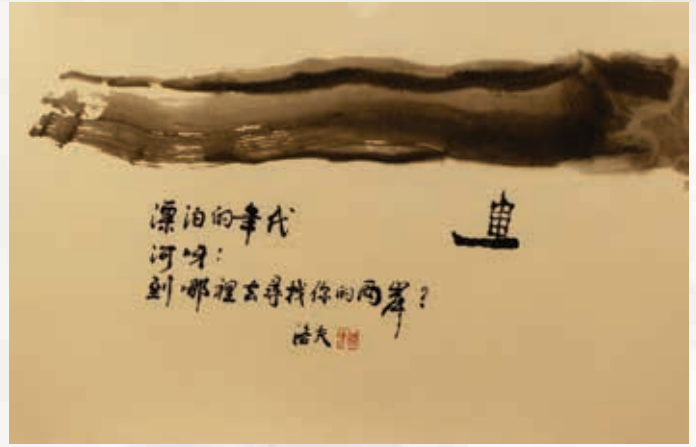 漂泊的年代
河呀：
到哪裡去尋找你的两岸？
洛夫